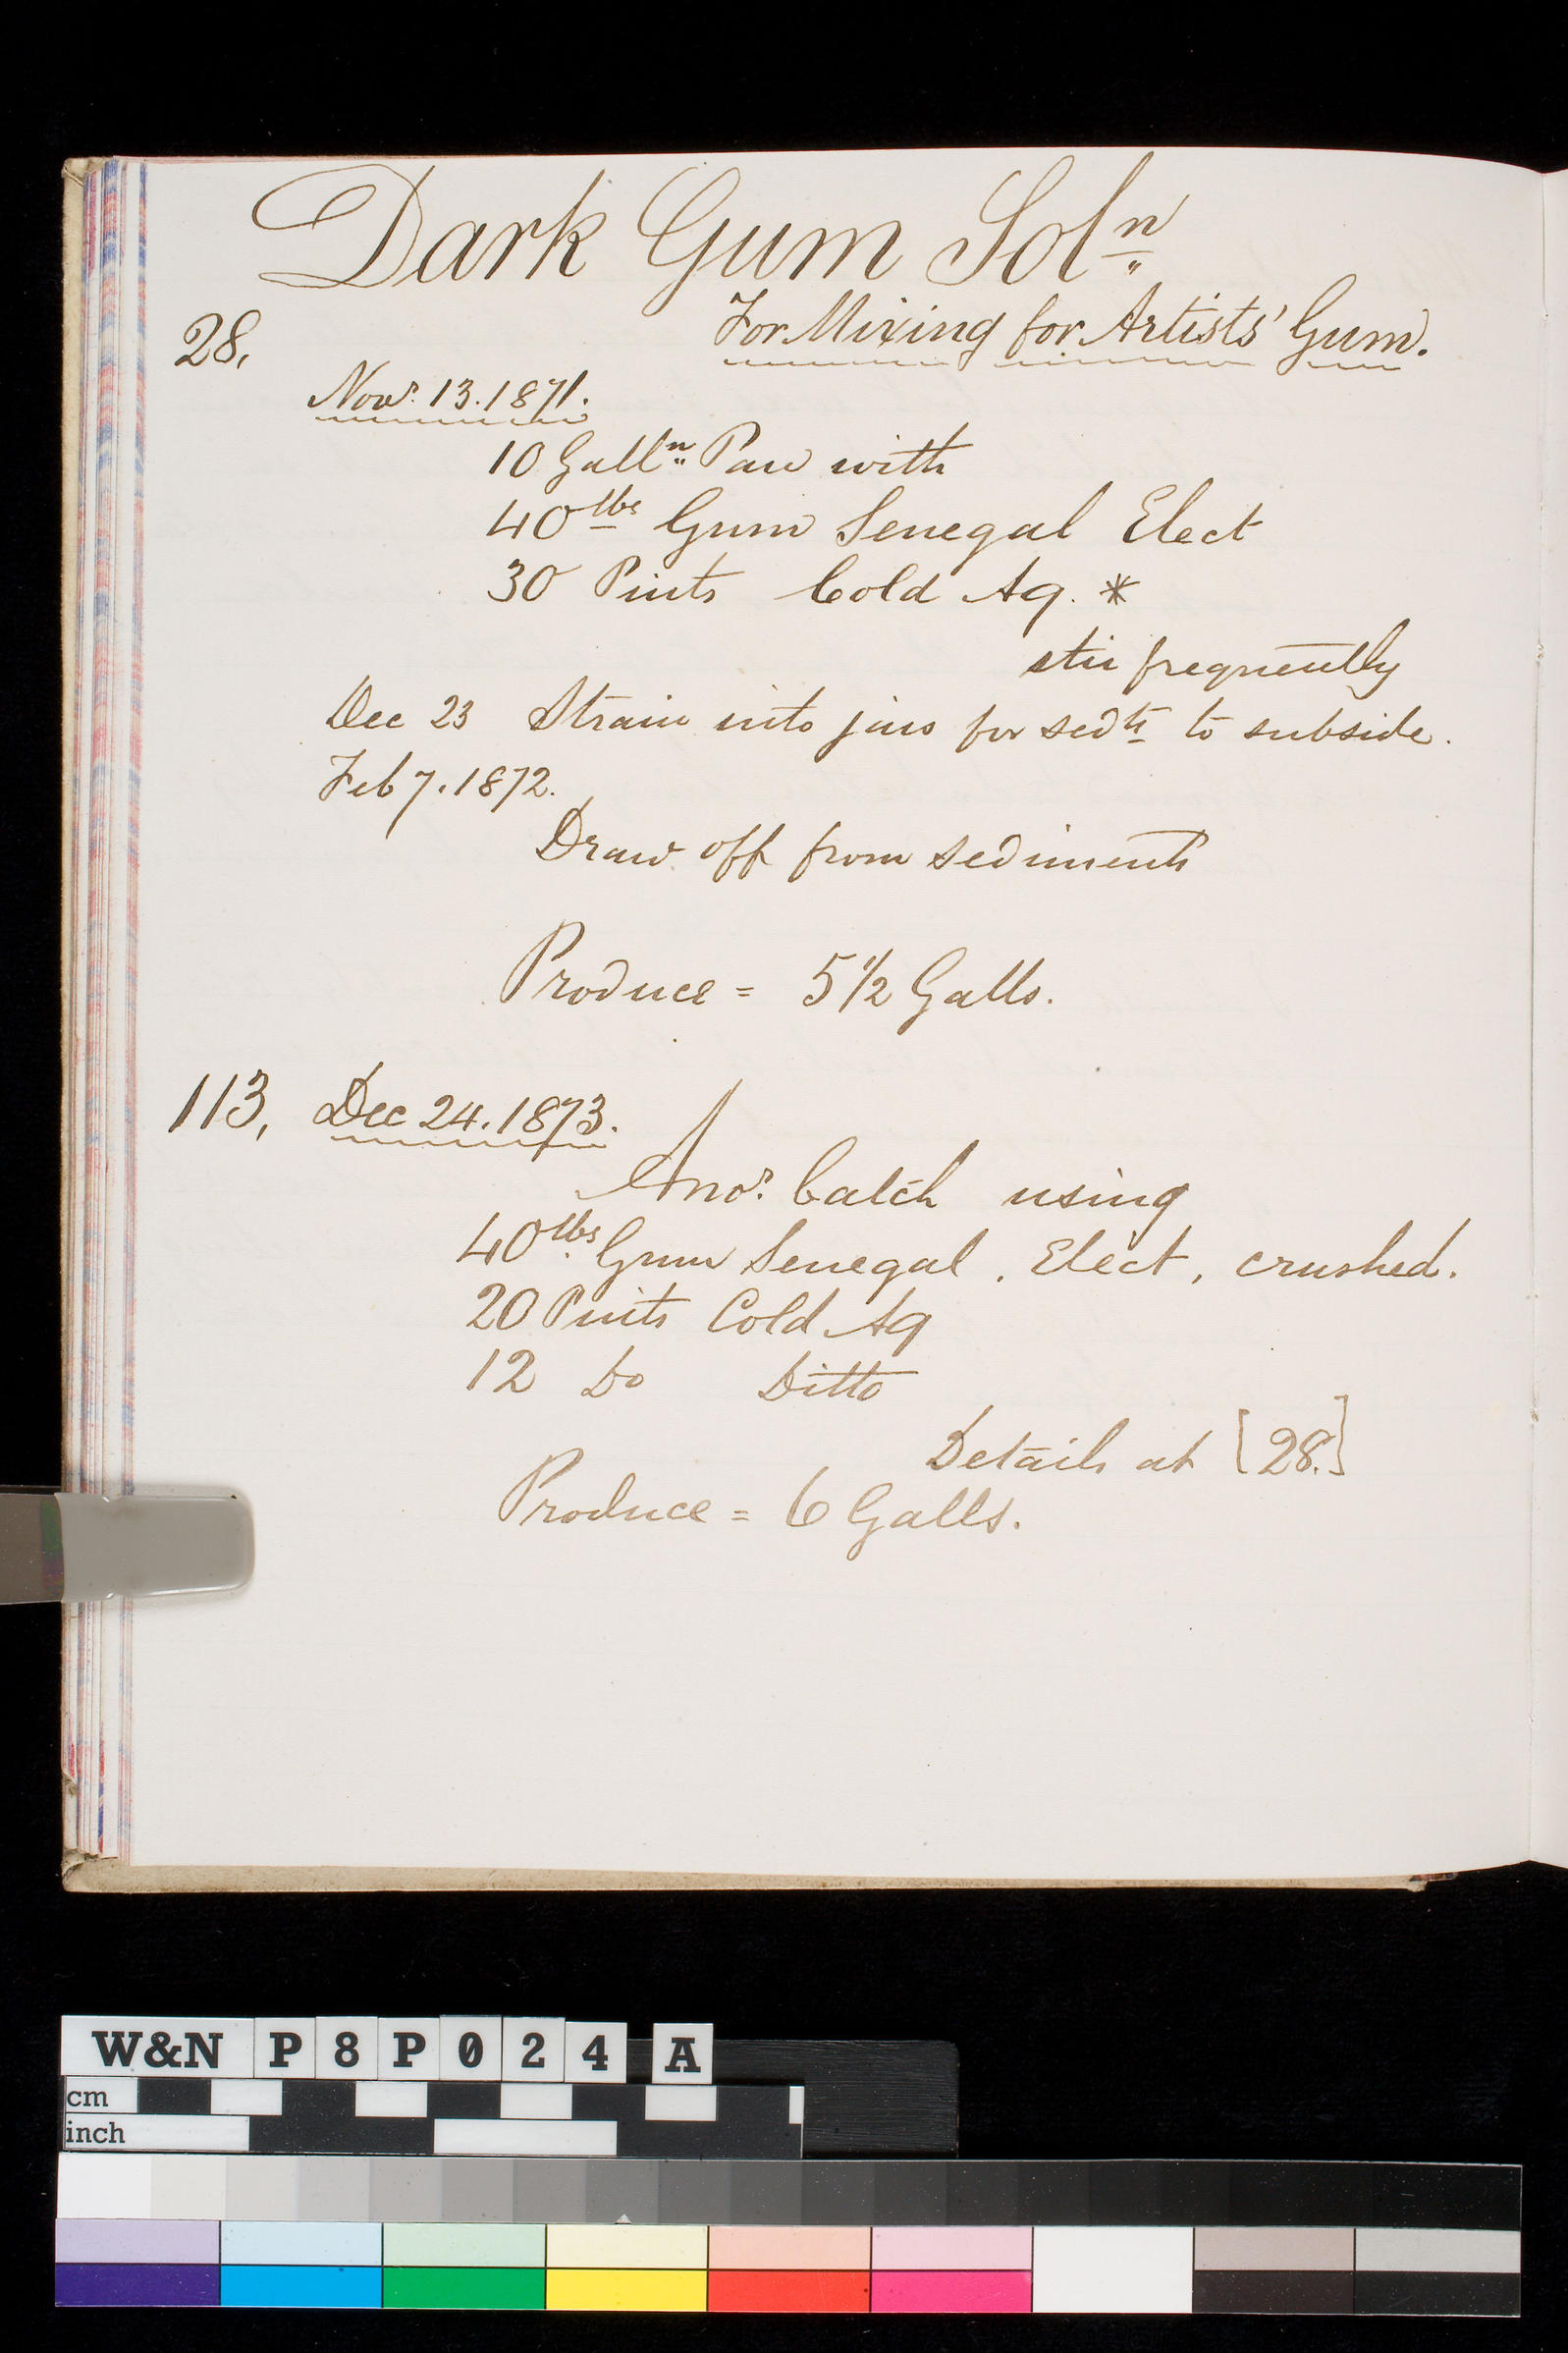 Dark Gum Sol<sup>n</sup>
For Mixing for Artists' Gum.
28.
Nov<sup>r</sup>. 13. 1871.
10 Gall<sup>n</sup> Pan with
40<sup>lbs</sup> Gum Senegal Elect
30 Pints Cold Aq. *
stir frequently
Dec 23 Strain into jars for sed<sup>ts</sup> to subside.
Feb 7. 1872.
Draw off from sediments
Produce = 5 1/2 Galls.
113, Dec 24. 1873.
Ano<sup>r</sup>. batch using
40<sup>lbs</sup> Gum Senegal, Elect, crushed.
20 Pints Cold Aq
12 Do Ditto
Details at [28.]
Produce = 6 Galls.
W&N P8P024 A
cm
inch